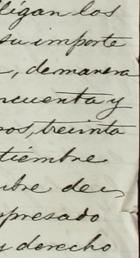 ligan los
su importe
, de manera
ncuenta y
ros, treinta
tiembre
bre de
presado
derecho